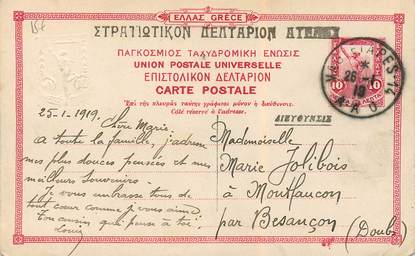 15f
ΕΛΛΑΣ GRÈCE
ΣΤΡΑΤΙΩΤΙΚΟΝ ΔΕΛΤΑΡΙΟΝ ΑΤΕΛΕΣ
ΠΑΓΚΟΣΜΙΟΣ ΤΑΧΥΔΡΟΜΙΚΗ ΕΝΩΣΙΣ
UNION POSTALE UNIVERSELLE
ΕΠΙΣΤΟΛΙΚΟΝ ΔΕΛΤΑΡΙΟΝ
CARTE POSTALE
Ἐπὶ τῆς πλευρᾶς ταύτης γράφεται μόνον ἡ διεύθυνσις.
Côté réservé à l'adresse.
ΔΙΕΥΘΥΝΣΙΣ
10 10
26
19
25-1-1919.
Chère Marie
à toute la famille, j'adresse
mes plus douces pensées et mes
meilleurs souvenirs.
Je vous embrasse tous de
tout cœur comme je vous aime.
Ton cousin qui pense à toi
Louis
Mademoiselle
Marie Jolibois
à Montfaucon
par Besançon
(Doubs)